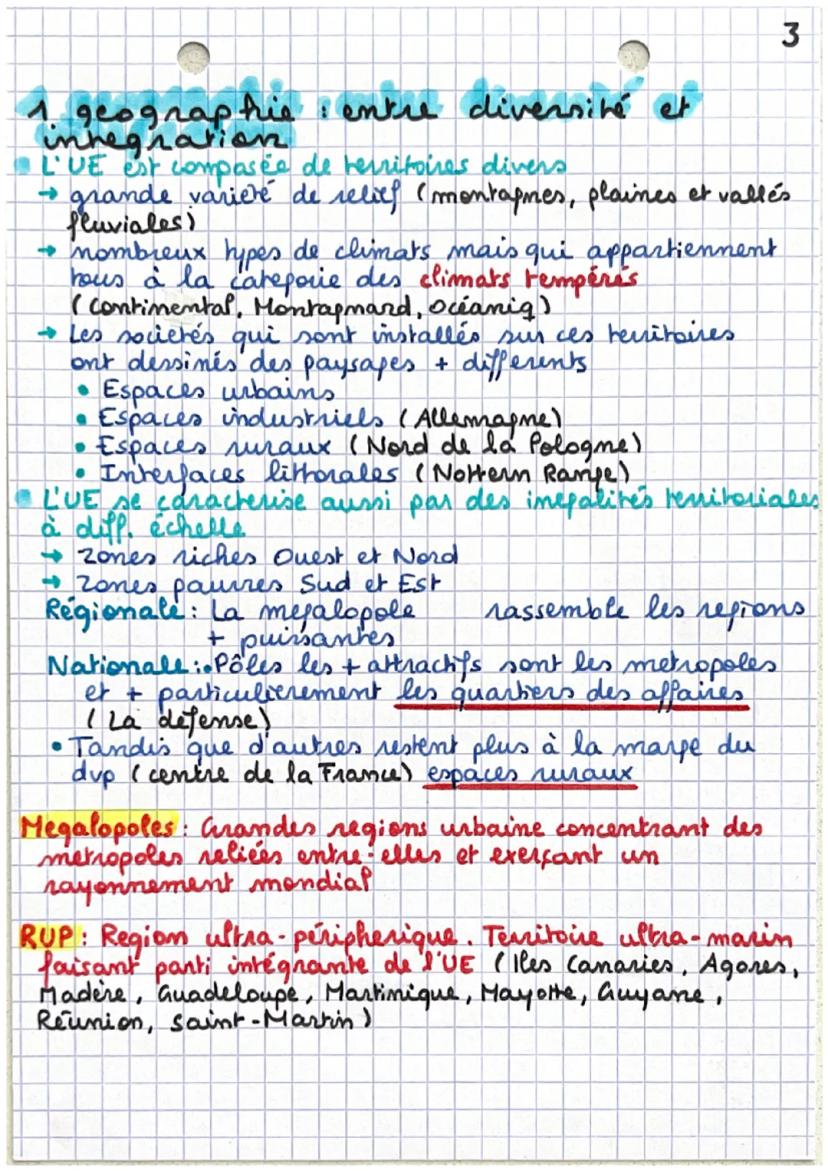 3
1 geographie : entre diversité et
intégration
L'UE est composée de territoires divers
→ grande varieté de relief (montagnes, plaines et vallés
fluviales)
→ nombreux types de climats mais qui appartiennent
tous à la categorie des climats tempérés
(Continental, Montagnard, Océaniq)
→ Les societés qui sont installés sur ces territoires
ont dessinés des paysages + differents
• Espaces urbains
• Espaces industriels (Allemagne)
• Espaces ruraux (Nord de la Pologne)
• Interfaces littorales (Nottern Range)
L'UE se caracterise aussi par des inégalités territoriales
à diff. échelle
→ Zones riches Ouest et Nord
→ Zones pauvres Sud et Est
Régionale : La megalopole rassemble les regions
+ puissantes
Nationale : • Pôles les + attractifs sont les metropoles
et + particulierement les quartiers des affaires
(La défense)
• Tandis que d'autres restent plus à la marge du
dvp (centre de la France) espaces ruraux
Megalopoles : Grandes regions urbaine concentrant des
metropoles reliées entre-elles et exerçant un
rayonnement mondial
RUP : Region ultra-péripherique. Territoire ultra-marin
faisant parti intégrante de l'UE (Iles Canaries, Açores,
Madère, Guadeloupe, Martinique, Mayotte, Guyane,
Réunion, Saint-Martin)